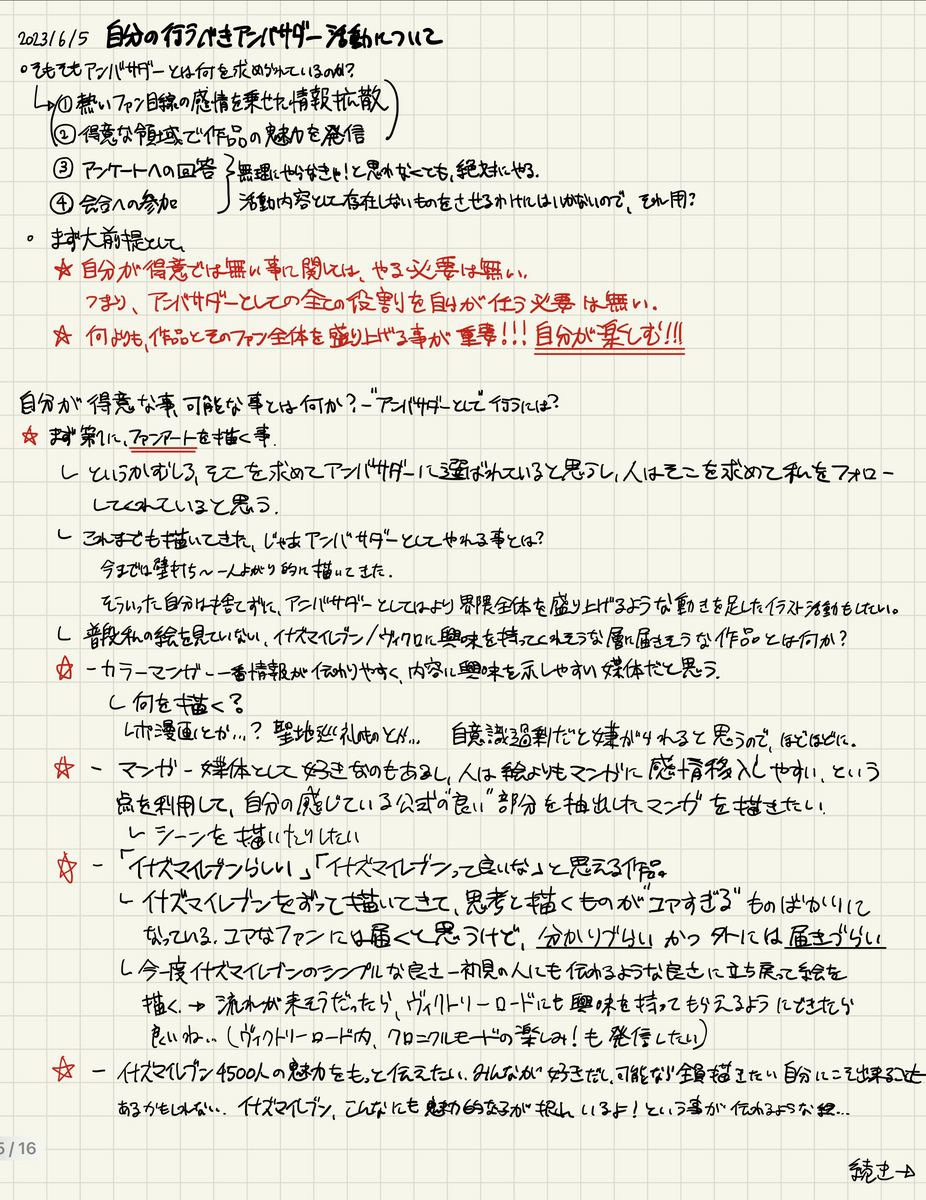 2023/6/5 自分の行うべきアンバサダー活動について
・そもそもアンバサダーとは何を求められているのか?
↳①熱いファン目線の感情を乗せた情報拡散
②得意な領域で作品の魅力を発信
③アンケートへの回答 無理にやらなきゃ!と思わなくても、絶対にやる。
④会合への参加 活動内容として存在しないものをさせるわけにはいかないので、それ用?
・まず大前提として、
☆自分が得意では無い事に関しては、やる必要は無い。
つまり、アンバサダーとしての全ての役割を自分が任う必要は無い。
☆何よりも、作品とそのファン全体を盛り上げる事が重要!!!自分が楽しむ!!!
自分が得意な事、可能な事とは何か?-"アンバサダーとして"行うには?
☆まず第1に、ファンアートを描く事。
└というかむしろ、そこを求めてアンバサダーに選ばれていると思うし、人はそこを求めて私をフォロー
してくれていると思う。
└これまでも描いてきた、じゃあアンバサダーとしてやれる事とは?
今までは壁打ち~一人よがり的に描いてきた。
そういった自分は捨てずに、アンバサダーとしてはより界隈全体を盛り上げるような動きを足したイラスト活動もしたい。
└普段私の絵を見ていない、イナズマイレブン/ヴィクロに興味を持ってくれそうな層に届きそうな作品とは何か?
☆-カラーマンガ-一番情報が伝わりやすく、内容に興味を示しやすい媒体だと思う。
└何を描く?
└レポ漫画とか…?聖地巡礼ものとか… 自意識過剰だと嫌がられると思うので、ほどほどに。
☆-マンガ-媒体として好きなのもあるし、人は絵よりもマンガに感情移入しやすい、という
点を利用して、自分の感じている公式の"良い"部分を抽出したマンガを描きたい。
└シーンを描いたりしたい
☆-「イナズマイレブンらしい」「イナズマイレブンって良いな」と思える作品。
└イナズマイレブンをずっと描いてきて、思考と描くものが"コアすぎる"ものばかりに
なっている。コアなファンには届くと思うけど、分かりづらいかつ外には届きづらい
└今一度イナズマイレブンのシンプルな良さ-初見の人にも伝わるような良さに立ち戻って絵を
描く。→流れが来そうだったら、ヴィクトリーロードにも興味を持ってもらえるようにできたら
良いね..(ヴィクトリーロード内、クロニクルモードの楽しみ!も発信したい)
☆-イナズマイレブン4500人の魅力をもっと伝えたい。みんなが好きだし、可能なら全員描きたい自分にこそ出来ること
あるかもしれない。イナズマイレブン、こんなにも魅力的な子が沢山いるよ!という事が伝わるような絵…
5/16
続き→